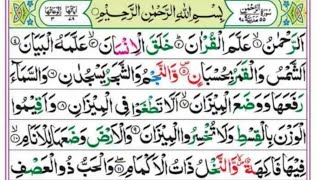 بِسْمِ اللهِ الرَّحْمٰنِ الرَّحِيْمِ
اَلرَّحْمٰنُ ۙ عَلَّمَ الْقُرْاٰنَ ؕ خَلَقَ الْاِنْسَانَ ۙ عَلَّمَهُ الْبَيَانَ
اَلشَّمْسُ وَالْقَمَرُ بِحُسْبَانٍ ۙ وَّالنَّجْمُ وَالشَّجَرُ يَسْجُدٰنِ وَالسَّمَآءَ
رَفَعَهَا وَوَضَعَ الْمِيْزَانَ ۙ اَلَّا تَطْغَوْا فِى الْمِيْزَانِ وَاَقِيْمُوا
الْوَزْنَ بِالْقِسْطِ وَلَا تُخْسِرُوا الْمِيْزَانَ وَالْاَرْضَ وَضَعَهَا لِلْاَنَامِ ۙ
فِيْهَا فَاكِهَةٌ ۙ وَّالنَّخْلُ ذَاتُ الْاَكْمَامِ ۖ وَالْحَبُّ ذُو الْعَصْفِ